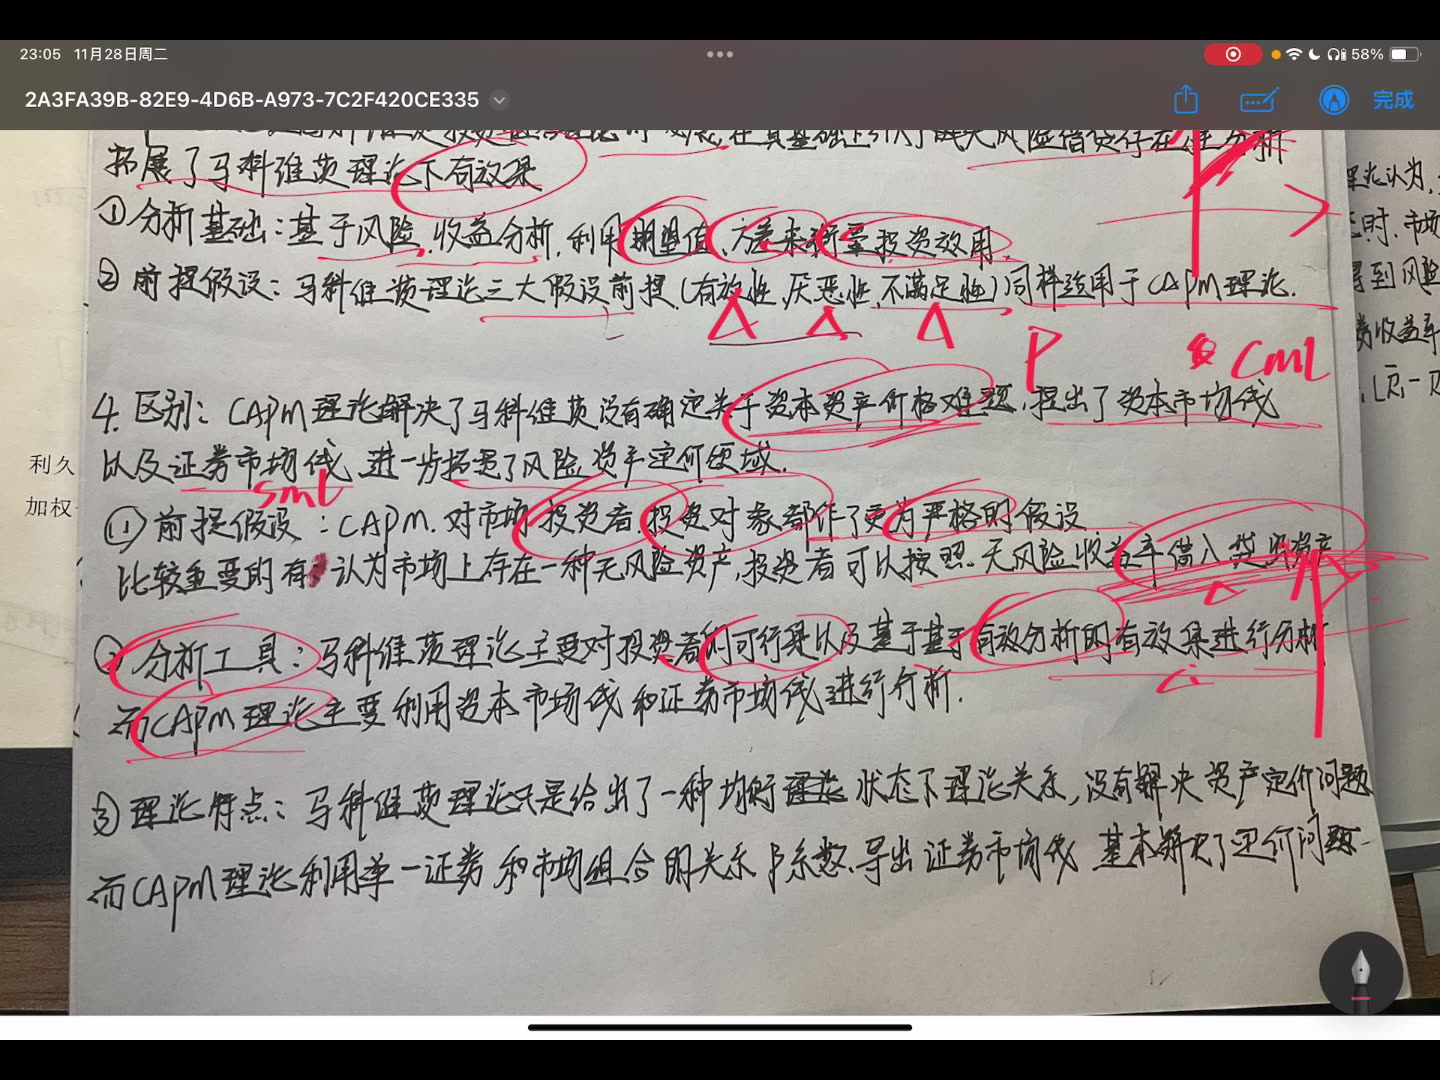 23:05 11月28日周二
58%
2A3FA39B-82E9-4D6B-A973-7C2F420CE335
完成
在其基础上引入了 无风险借贷存在 分析
拓展了马科维茨理论下有效集
①分析基础：基于风险、收益分析，利用期望值、方差来衡量投资效用.
②前提假设：马科维茨理论三大假设前提(有效性、厌恶性、不满足性)同样适用于CAPM理论.
P CML
4. 区别：CAPM理论解决了马科维茨没有确定关于资本资产价格难题，提出了资本市场线
以及证券市场线，进一步拓宽了风险资产定价领域.
SML
①前提假设：CAPM.对市场投资者投资对象都作了更为严格的假设
比较重要的有 认为市场上存在一种无风险资产，投资者可以按照无风险收益率借入贷出资产
②分析工具：马科维茨理论主要对投资者的可行集以及基于基于有效分析的有效集进行分析
而CAPM理论主要利用资本市场线和证券市场线进行分析.
③理论特点：马科维茨理论只是给出了一种均衡 状态下理论关系，没有解决资产定价问题
而CAPM理论利用单一证券和市场组合的关系β系数.导出证券市场线 基本解决了定价问题
利久
加权
理论认为，
时，市场
得到风险
收益率